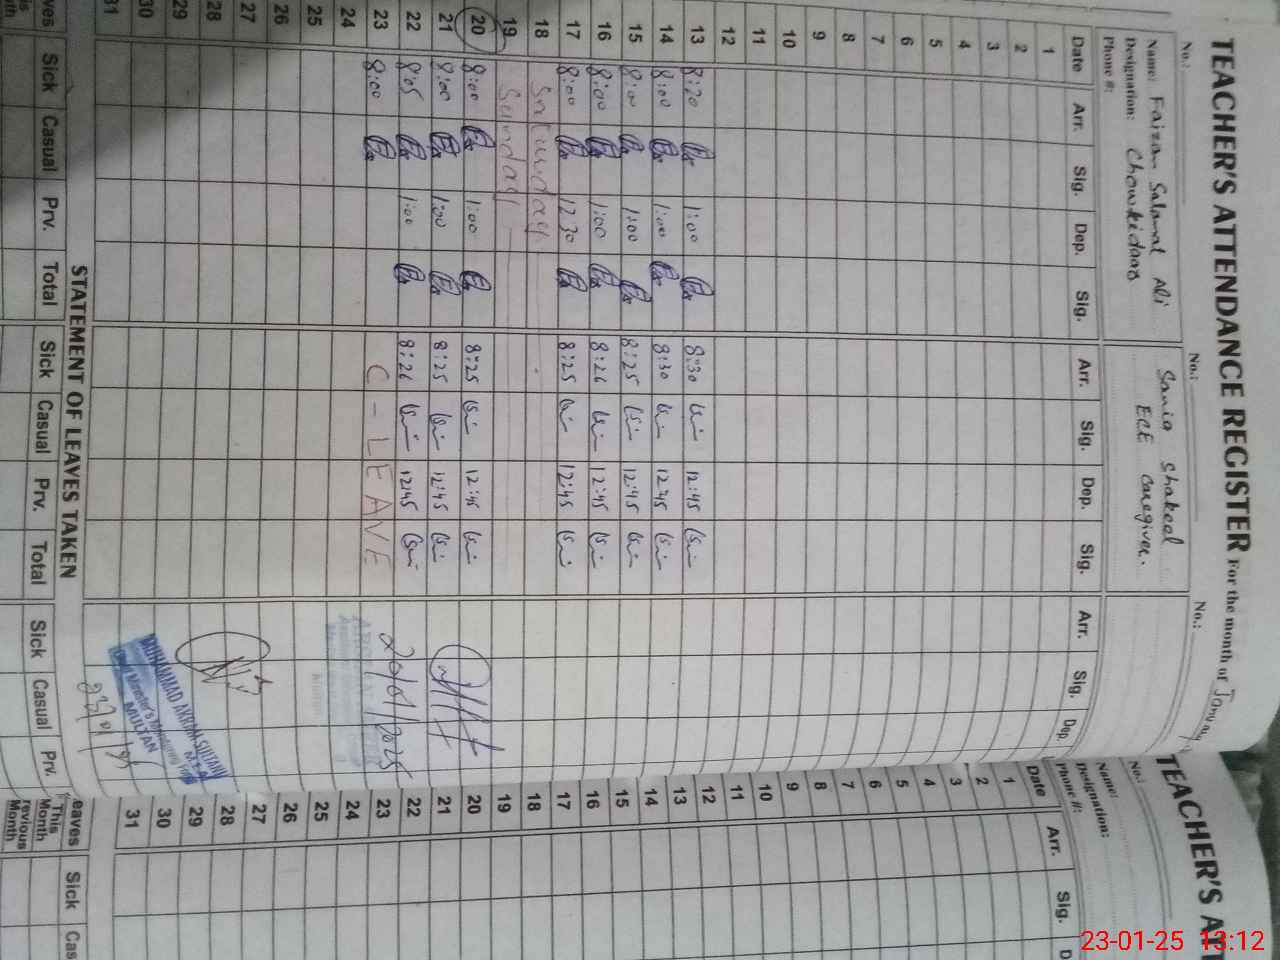 TEACHER'S ATTENDANCE REGISTER For the month of January
No.: No.: No.:
Name: Faizan Salamat Ali Sania Shakeel
Designation: Chowkidaar ECE Caregiver.
Phone #:
Date Arr. Sig. Dep. Sig. Arr. Sig. Dep. Sig. Arr. Sig. Dep.
1
2
3
4
5
6
7
8
9
10
11
12
13 8:20 1:00 8:30 12:45
14 8:00 1:00 8:30 12:45
15 8:00 1:00 8:25 12:45
16 8:00 1:00 8:26 12:45
17 8:00 12 30 8:25 12:45
18 Saturday
19 Sunday
20 8:00 1:00 8:25 12:45
21 8:00 1:00 8:25 12:45
22 8:05 1:00 8:26 12:45
23 8:00 C - LEAVE
24
25
26
27
28
29
30
31
20/01/2025
MUHAMMAD AKRAM SULTANI
MULTAN
STATEMENT OF LEAVES TAKEN
Sick Casual Prv. Total Sick Casual Prv. Total Sick Casual Prv.
TEACHER'S AT
No.:
Name:
Designation:
Phone #:
Date Arr. Sig. D
1
2
3
4
5
6
7
8
9
10
11
12
13
14
15
16
17
18
19
20
21
22
23
24
25
26
27
28
29
30
31
Leaves Sick Cas
This Month
Previous Month
23-01-25 13:12